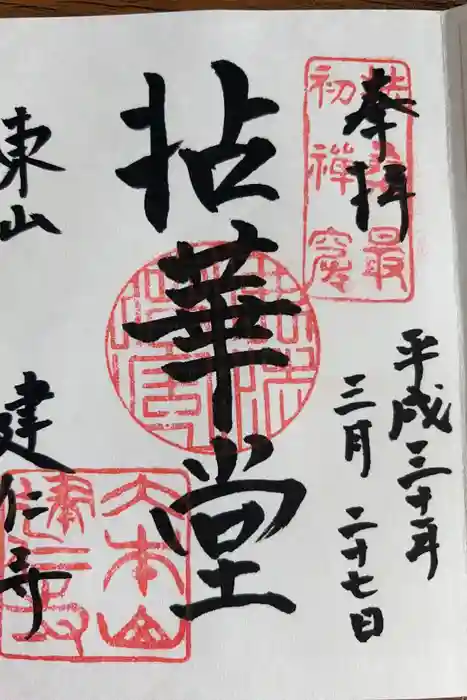 奉拝
扶桑最
初禅窟
平成三十年
三月二十七日
拈華堂
東山
建仁寺
大本山
建仁寺